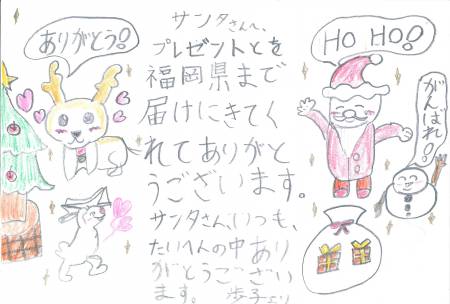 ありがとう!
サンタさんへ、
プレゼントとを
福岡県まで
届けにきてく
れてありがと
うございます。
サンタさん、いつも、
たいへんの中あり
がとうござい
ます。 歩子より
HO HO!
がんばれ!!